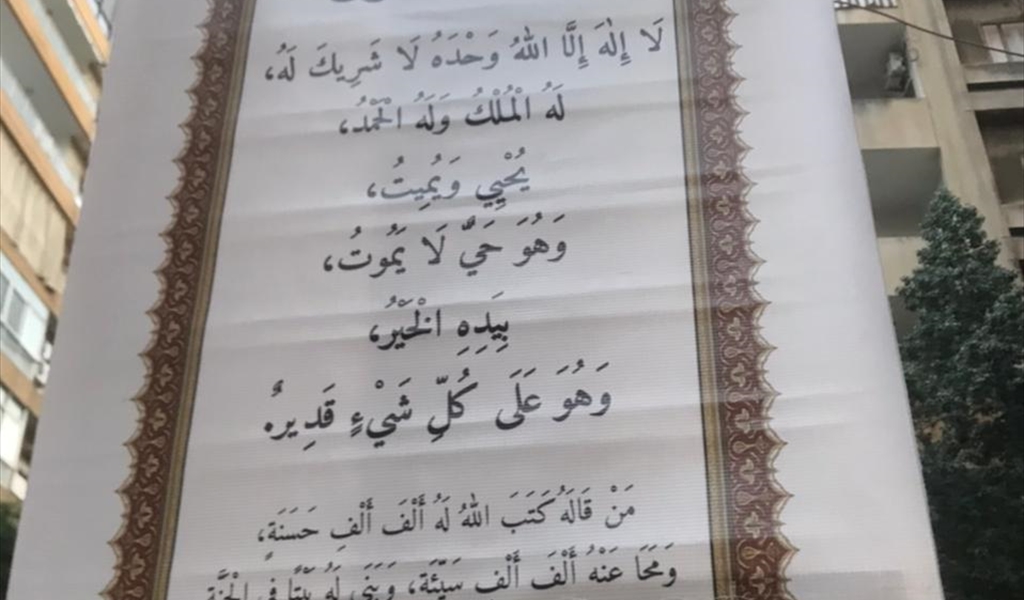 لَا إِلٰهَ إِلَّا اللهُ وَحْدَهُ لَا شَرِيكَ لَهُ،
لَهُ الْمُلْكُ وَلَهُ الْحَمْدُ،
يُحْيِي وَيُمِيتُ،
وَهُوَ حَيٌّ لَا يَمُوتُ،
بِيَدِهِ الْخَيْرُ،
وَهُوَ عَلَى كُلِّ شَيْءٍ قَدِيرٌ.
مَنْ قَالَهُ كَتَبَ اللهُ لَهُ أَلْفَ أَلْفِ حَسَنَةٍ،
وَمَحَا عَنْهُ أَلْفَ أَلْفِ سَيِّئَةٍ، وَبَنَى لَهُ بَيْتًا فِي الْجَنَّةِ